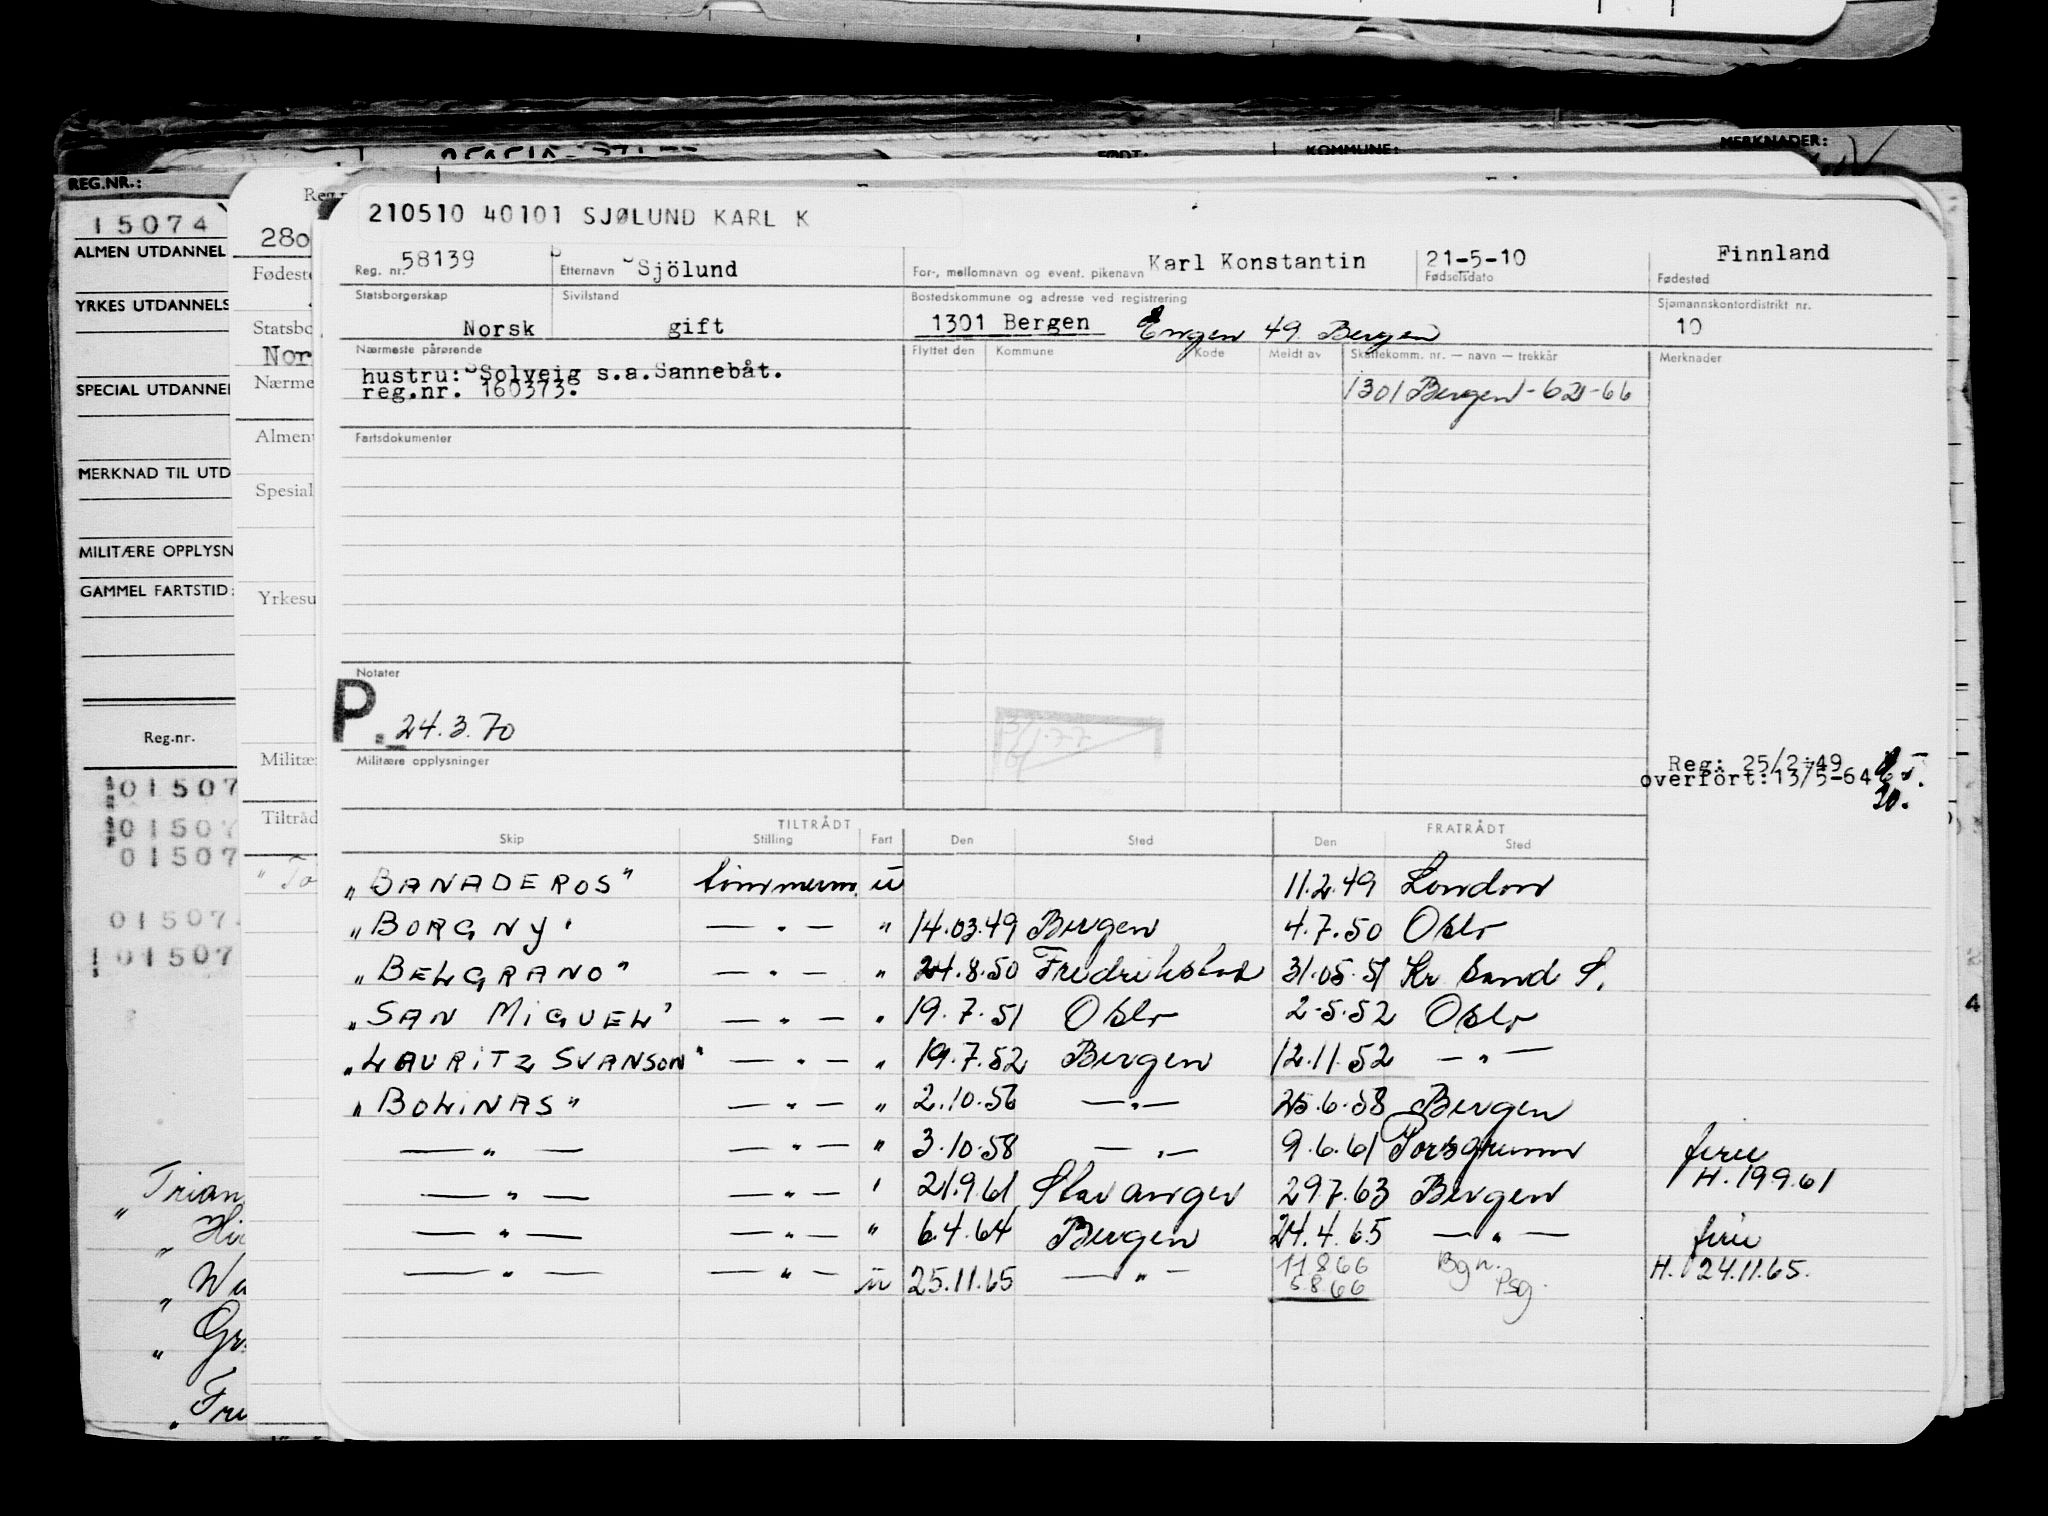 FØDT: KOMMUNE: MERKNADER:
REG.NR.:
15074
ALMEN UTDANNEL
YRKES UTDANNELS
SPECIAL UTDANNEL
MERKNAD TIL UTD
MILITÆRE OPPLYSN
GAMMEL FARTSTID:
Reg.nr.
01507
01507
01507
01507
01507
"Trian
" Wa
" Gr
" Fre
280
Fødeste
Statsbo
Nor
Nærme
Almen
Spesial
Yrkesu
Militæ
Tiltråd
"To
210510 40101 SJØLUND KARL K
Reg. nr. 58139 Etternavn Sjölund For-, mellomnavn og event. pikenavn Karl Konstantin 21-5-10 Fødselsdato Finnland Fødested
Statsborgerskap Sivilstand Bostedskommune og adresse ved registrering Sjømannskontordistrikt nr.
Norsk gift 1301 Bergen Engen 49 Bergen 10
Nærmeste pårørende Flyttet den Kommune Kode Meldt av Skattekomm. nr. — navn — trekkår Merknader
hustru: Solveig s.a. Sannebåt.
reg.nr. 160373. 1301 Bergen - 62-66
Fartsdokumenter
Notater
P. 24.3.70
Militære opplysninger
Reg: 25/2-49
overfört: 13/5-64
TILTRÅDT FRATRÅDT
Skip Stilling Fart Den Sted Den Sted
"BANADEROS" tömmerm. u 11.2.49 London
"BORGNY" — " — " 14.03.49 Bergen 4.7.50 Oslo
"BELGRANO" — " — " 24.8.50 Fredrikstad 31.05.51 Kr sand S.
"SAN MIGUEL" — " — " 19.7.51 Oslo 2-5.52 Oslo
"LAURITZ SVANSON" — " — " 19.7.52 Bergen 12.11.52 — " —
"BOLINAS" — " — " 2.10.56 — " — 25.6.58 Bergen
— " — — " — " 3.10.58 — " — 9.6.61 Porsgrunn ferie
— " — — " — " 21.9.61 Stavanger 29.7.63 Bergen H. 19.9.61
— " — — " — " 6.4.64 Bergen 24.4.65 — " — ferie
— " — — " — u 25.11.65 — " — 11.8.66 Bgn. H. 24.11.65.
5.8.66 Psg.